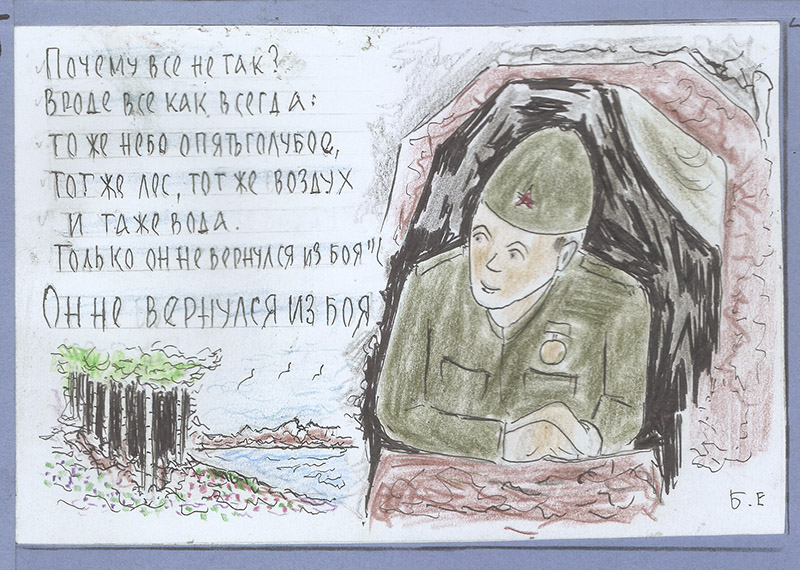 Почему все не так?
Вроде все как всегда:
то же небо опять голубое,
тот же лес, тот же воздух
и таже вода.
Только он не вернулся из боя"
Он не вернулся из боя
Б.Е